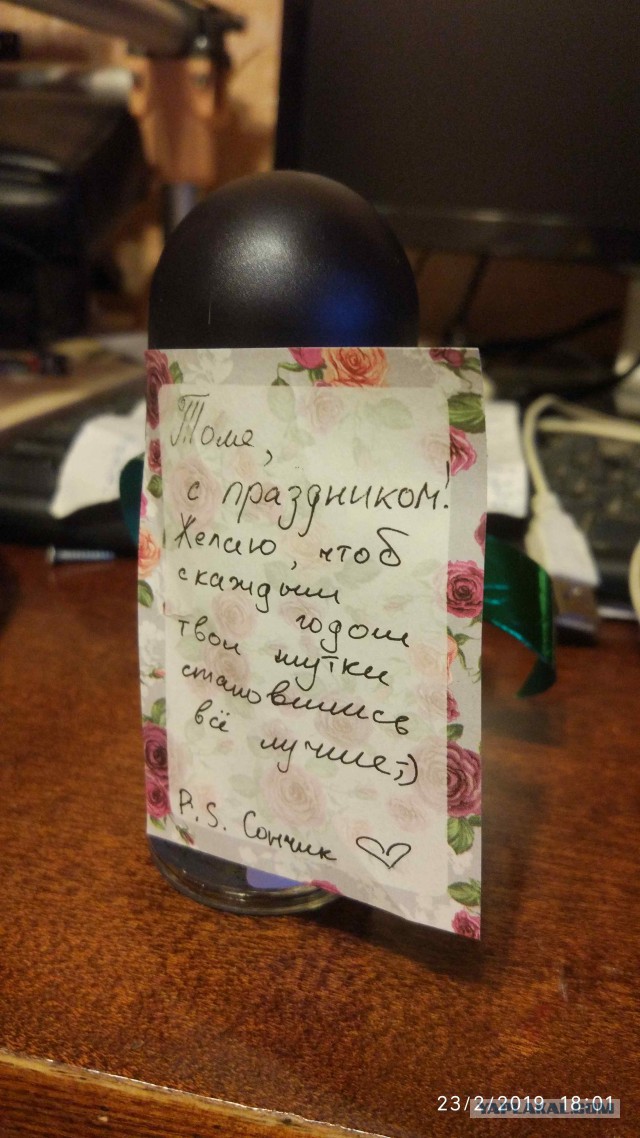 Тома,
с праздником!
Желаю, чтоб
с каждым
годом
твои шутки
становились
всё лучше ;)
P.S. Сончик ♡
23/2/2019 18:01
YAPLAKAL.COM